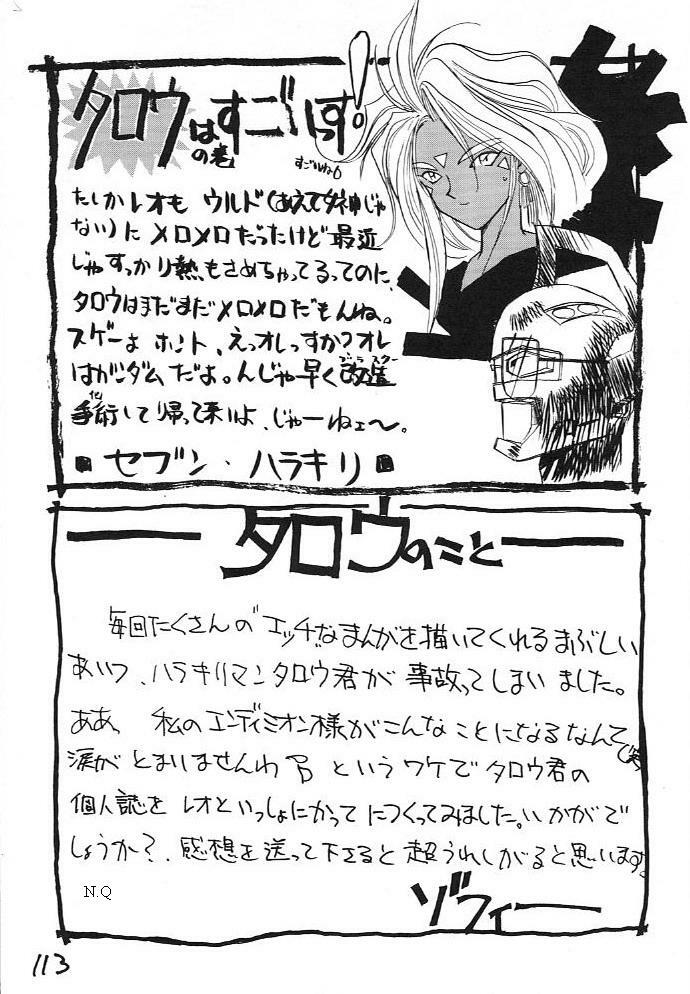 タロウはすごいっす!
の巻
すごいね
たしかレオも ウルド(あえて女神じゃ
ない)に メロメロだったけど 最近
じゃすっかり熱もさめちゃってるってのに、
タロウはまだまだメロメロだもんね。
スゲーよ ホント、えっオレっすか?オレ
はガンダムだよ。んじゃ早く改造
手術して帰って来いよ、じゃーねェ〜。
■ セブン・ハラキリ ■
タロウのこと
毎回たくさんの"エッチ"なまんがを描いてくれるまぶしい
あいつ、ハラキリマンタロウ君が 事故ってしまいました。
ああ、私のエンディミオン様がこんなことになるなんて
涙が とまりませんわ というワケでタロウ君の
個人誌を レオといっしょにかってにつくってみました。いかがで
しょうか?、感想を送って下さると 超うれしがると思います。
N.Q
ゾフィー
113